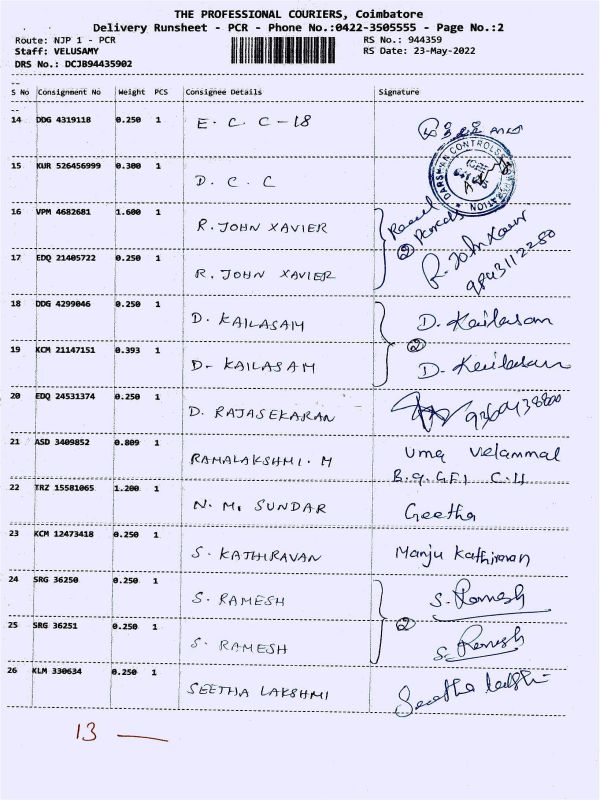 THE PROFESSIONAL COURIERS, Coimbatore
Delivery Runsheet - PCR - Phone No.:0422-3505555 - Page No.:2
Route: NJP 1 - PCR RS No.: 944359
Staff: VELUSAMY RS Date: 23-May-2022
DRS No.: DCJB94435902
S No Consignment No Weight PCS Consignee Details Signature
14 DDG 4319118 0.250 1 E. C. C - 18
15 KUR 526456999 0.300 1 D. C. C
DARSHAN CONTROLS
16 VPM 4682681 1.600 1 R. JOHN XAVIER
2 Parcels
17 EDQ 21405722 0.250 1 R. JOHN XAVIER R. John Xavier
9843112280
18 DDG 4299046 0.250 1 D. KAILASAM D. Kailasam
2
19 KCM 21147151 0.393 1 D- KAILASAM D- Kailasam
20 EDQ 24531374 0.250 1 D. RAJASEKARAN
21 ASD 3409852 0.809 1 RAMALAKSHMI. M Uma Velammal
22 TRZ 15581065 1.200 1 N. M. SUNDAR Geetha
23 KCM 12473418 0.250 1 S. KATHIRAVAN Manju Kathiravan
24 SRG 36250 0.250 1 S. RAMESH S. Ramesh
2
25 SRG 36251 0.250 1 S. RAMESH S. Ramesh
26 KLM 330634 0.250 1 SEETHA LAKSHMI
13